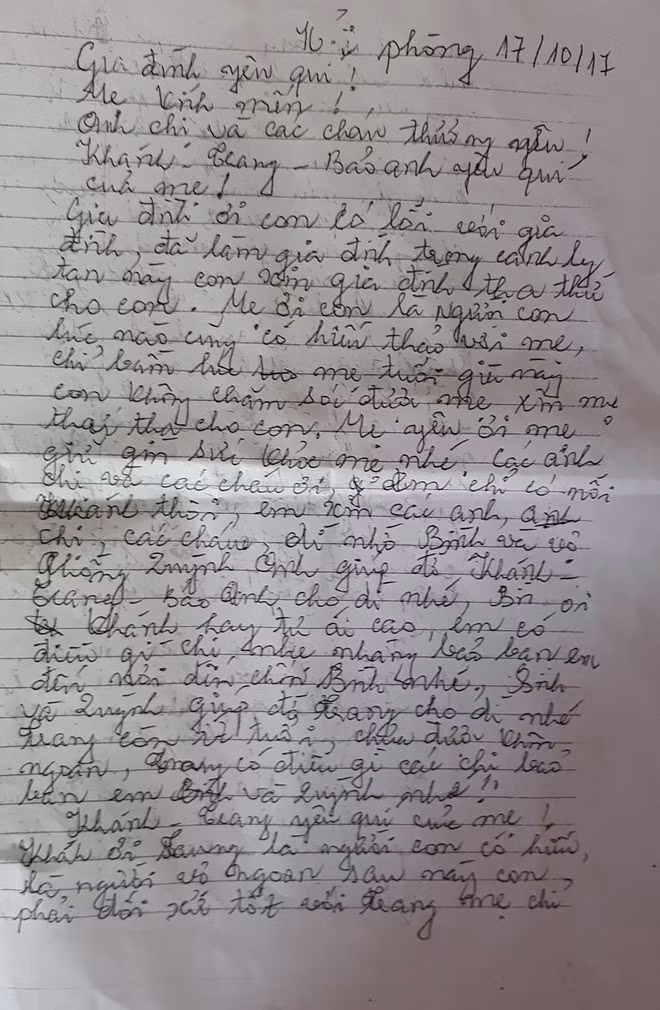 Hải phòng 17/10/17
Gia đình yêu quí!
Mẹ kính mến!
Anh chị và các cháu thương yêu!
Khánh - Trang - Bảo anh yêu quí
của mẹ!
Gia đình ơi con có lỗi với gia
đình, đã làm gia đình trong cảnh ly
tan này con xin gia đình tha thứ
cho con. Mẹ ơi con là người con
lúc nào cũng có hiếu thảo với mẹ,
chỉ mẹ tuổi già này
con không chăm sóc được mẹ xin mẹ
tha cho con. Mẹ yêu ơi mẹ
giữ gìn sức khỏe mẹ nhé. Các anh
chị và các cháu ơi, chỉ có nỗi
thôi, em xin các anh, anh
chị, các cháu, dì nhờ Bình và vợ
chồng Quỳnh Anh giúp đỡ Khánh -
Trang - Bảo Anh cho dì nhé, Bn ơi
Khánh hay tự ái cao, em có
điều gì chị nhẹ nhàng bảo ban em
đến nơi đến chốn Bình nhé, Bình
và Quỳnh giúp đỡ Trang cho dì nhé
Trang còn tuổi, chưa được khôn
ngoan, Trang có điều gì các chị bảo
ban em và Quỳnh nhé!
Khánh - Trang yêu quí của mẹ!
Khánh ơi Trang là người con có hiếu,
là người vợ ngoan sau này con
phải đối xử tốt với Trang mẹ chỉ